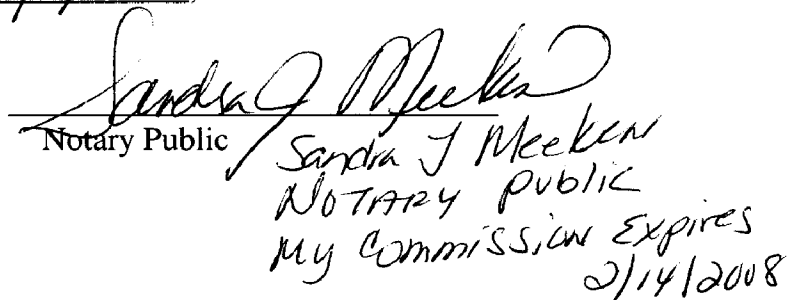 Sandra J Meeken
Notary Public
Sandra J Meeken
NOTARY Public
My Commission Expires
2/14/2008